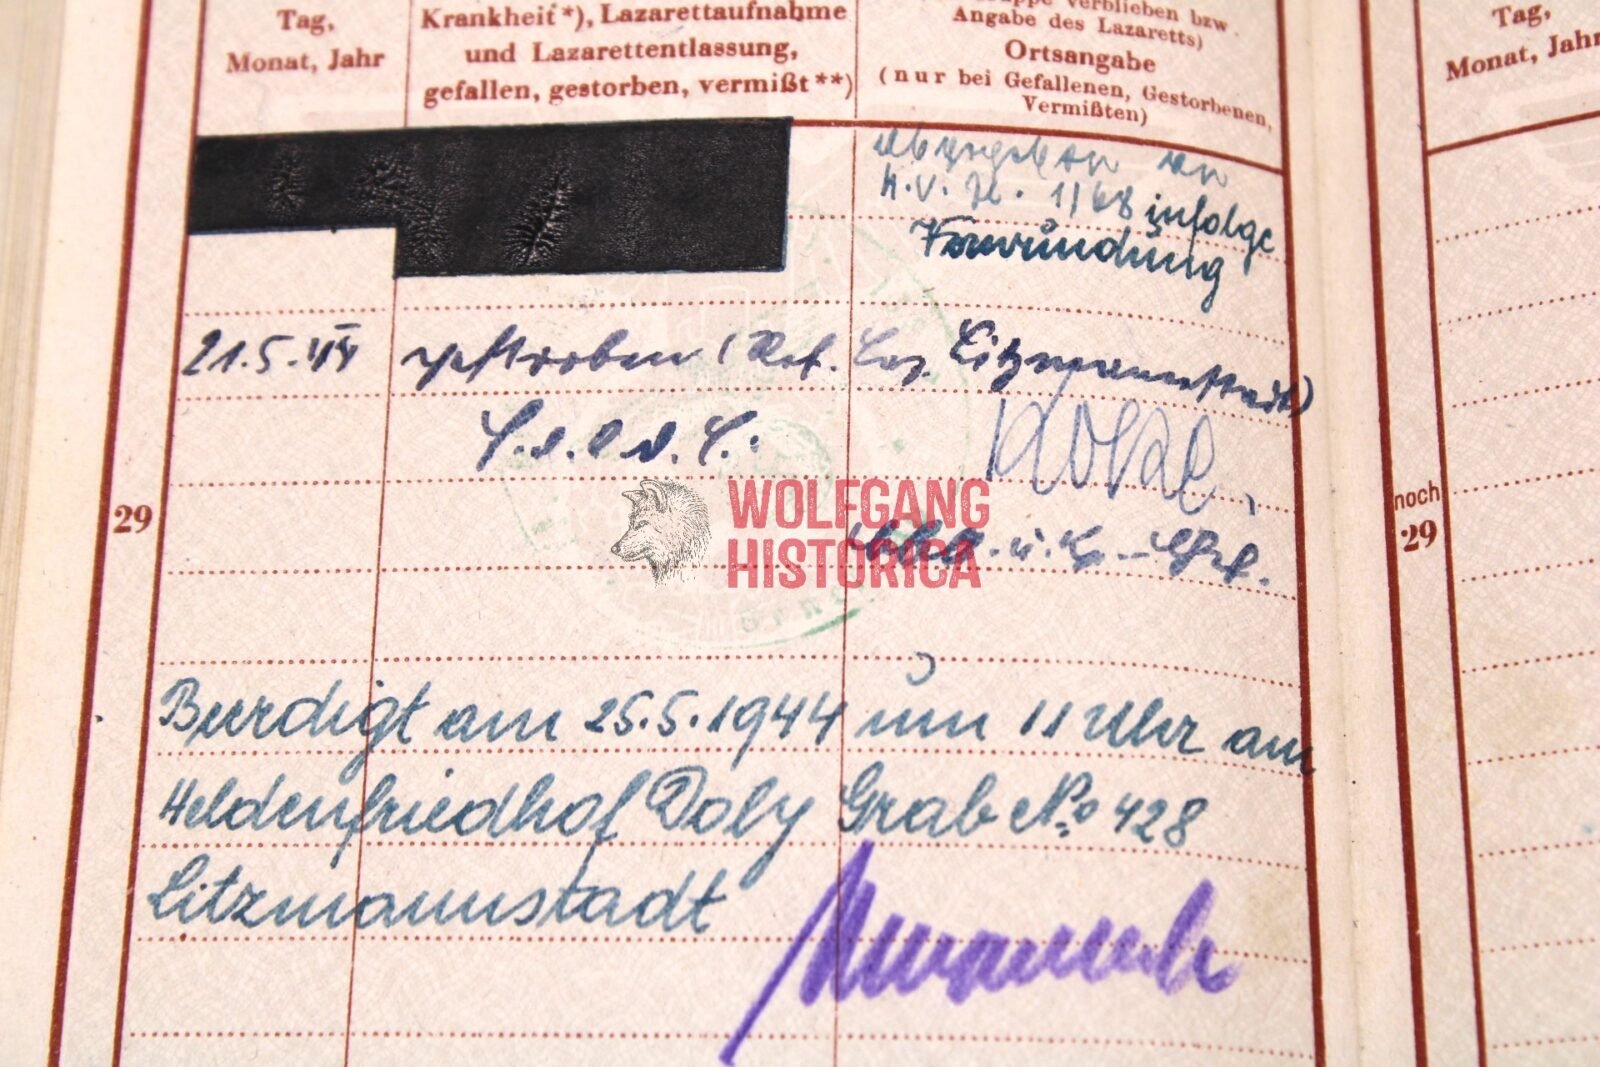 Tag,
Monat, Jahr
Krankheit*), Lazarettaufnahme
und Lazarettentlassung,
gefallen, gestorben, vermißt**)
verblieben bzw.
Angabe des Lazaretts)
Ortsangabe
(nur bei Gefallenen, Gestorbenen,
Vermißten)
Tag,
Monat, Jahr
abgegeben an
infolge
Verwundung
21.5.44 gestorben (Res. Laz. Litzmannstadt)
29
noch
29
WOLFGANG
HISTORICA
Beerdigt am 25.5.1944 um 11 Uhr am
Heldenfriedhof Doly Grab No 428
Litzmannstadt